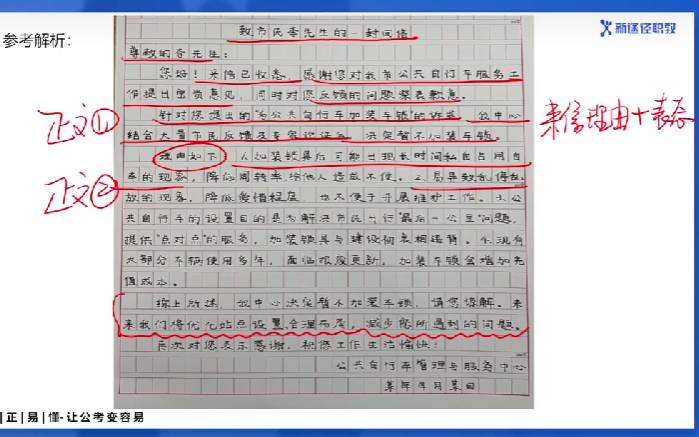 参考解析：
新途径职教
致市民李先生的一封回信
尊敬的李先生：
您好！来信已收悉，感谢您对我市公共自行车服务工
作提出宝贵意见，同时对您反映的问题深表歉意。
针对您提出的"为公共自行车加装车锁"的诉求，我中心
结合大量市民反馈及专家论证后，决定暂不加装车锁。
理由如下：1.加装锁具后可能出现长时间私自占用自
车的现象，降低周转率，给他人造成不便。2.易导致乱停乱
放的现象，降低爱惜程度，也不便于开展维护工作。3.公
共自行车的设置目的是为解决市民出行"最后一公里"问题，
提供"点对点"的服务，加装锁具与建设初衷相违背。4.现有
大部分车辆使用多年，面临报废更新，加装车锁会增加充
值成本。
综上所述，我中心决定暂不加装车锁，请您谅解。未
来我们将优化站点设置，合理布局，减少您所遇到的问题。
再次对您表示感谢，祝您工作生活愉快！
公共自行车管理与服务中心
某年某月某日
正文①
来信理由+表态
正文②
|正|易|懂-让公考变容易